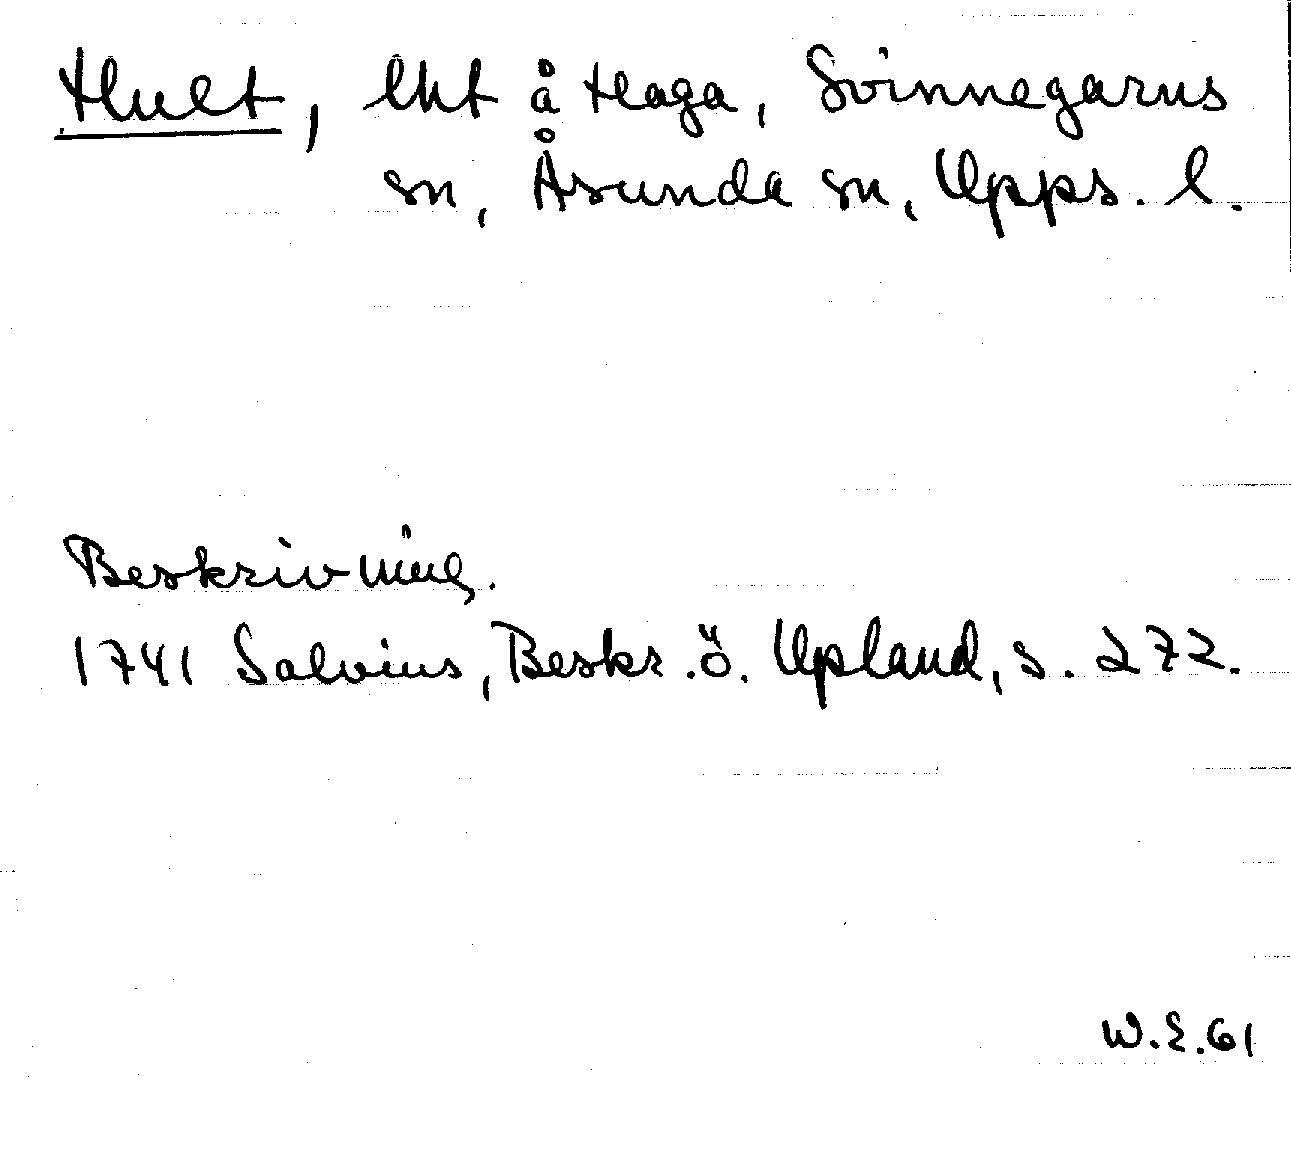 Hult, lht å Haga, Svinnegarns
sn, Åsunda sn, Upps. l.
Beskrivning.
1741 Salvius, Beskr. ö. Upland, s. 272.
W.E.61